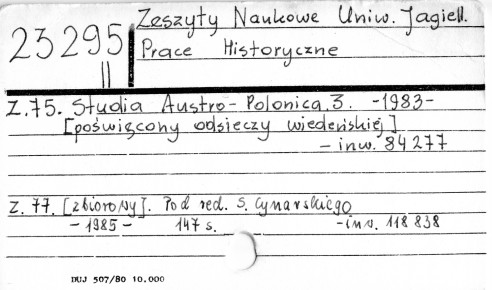 23295
II
Zeszyty Naukowe Uniw. Jagiell.
Prace Historyczne
Z.75. Studia Austro-Polonica, 3. -1983-
[poświęcony odsieczy wiedeńskiej]
- inw. 84277
Z. 77. [zbiorowy]. Pod red. S. Cynarskiego
- 1985 - 147 s. - inw. 118 838
DUJ 507/80 10.000